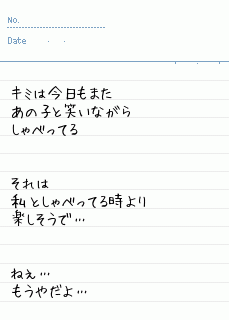 No.
Date ・ ・
キミは今日もまた
あの子と笑いながら
しゃべってる
それは
私としゃべってる時より
楽しそうで…
ねぇ…
もうやだよ…